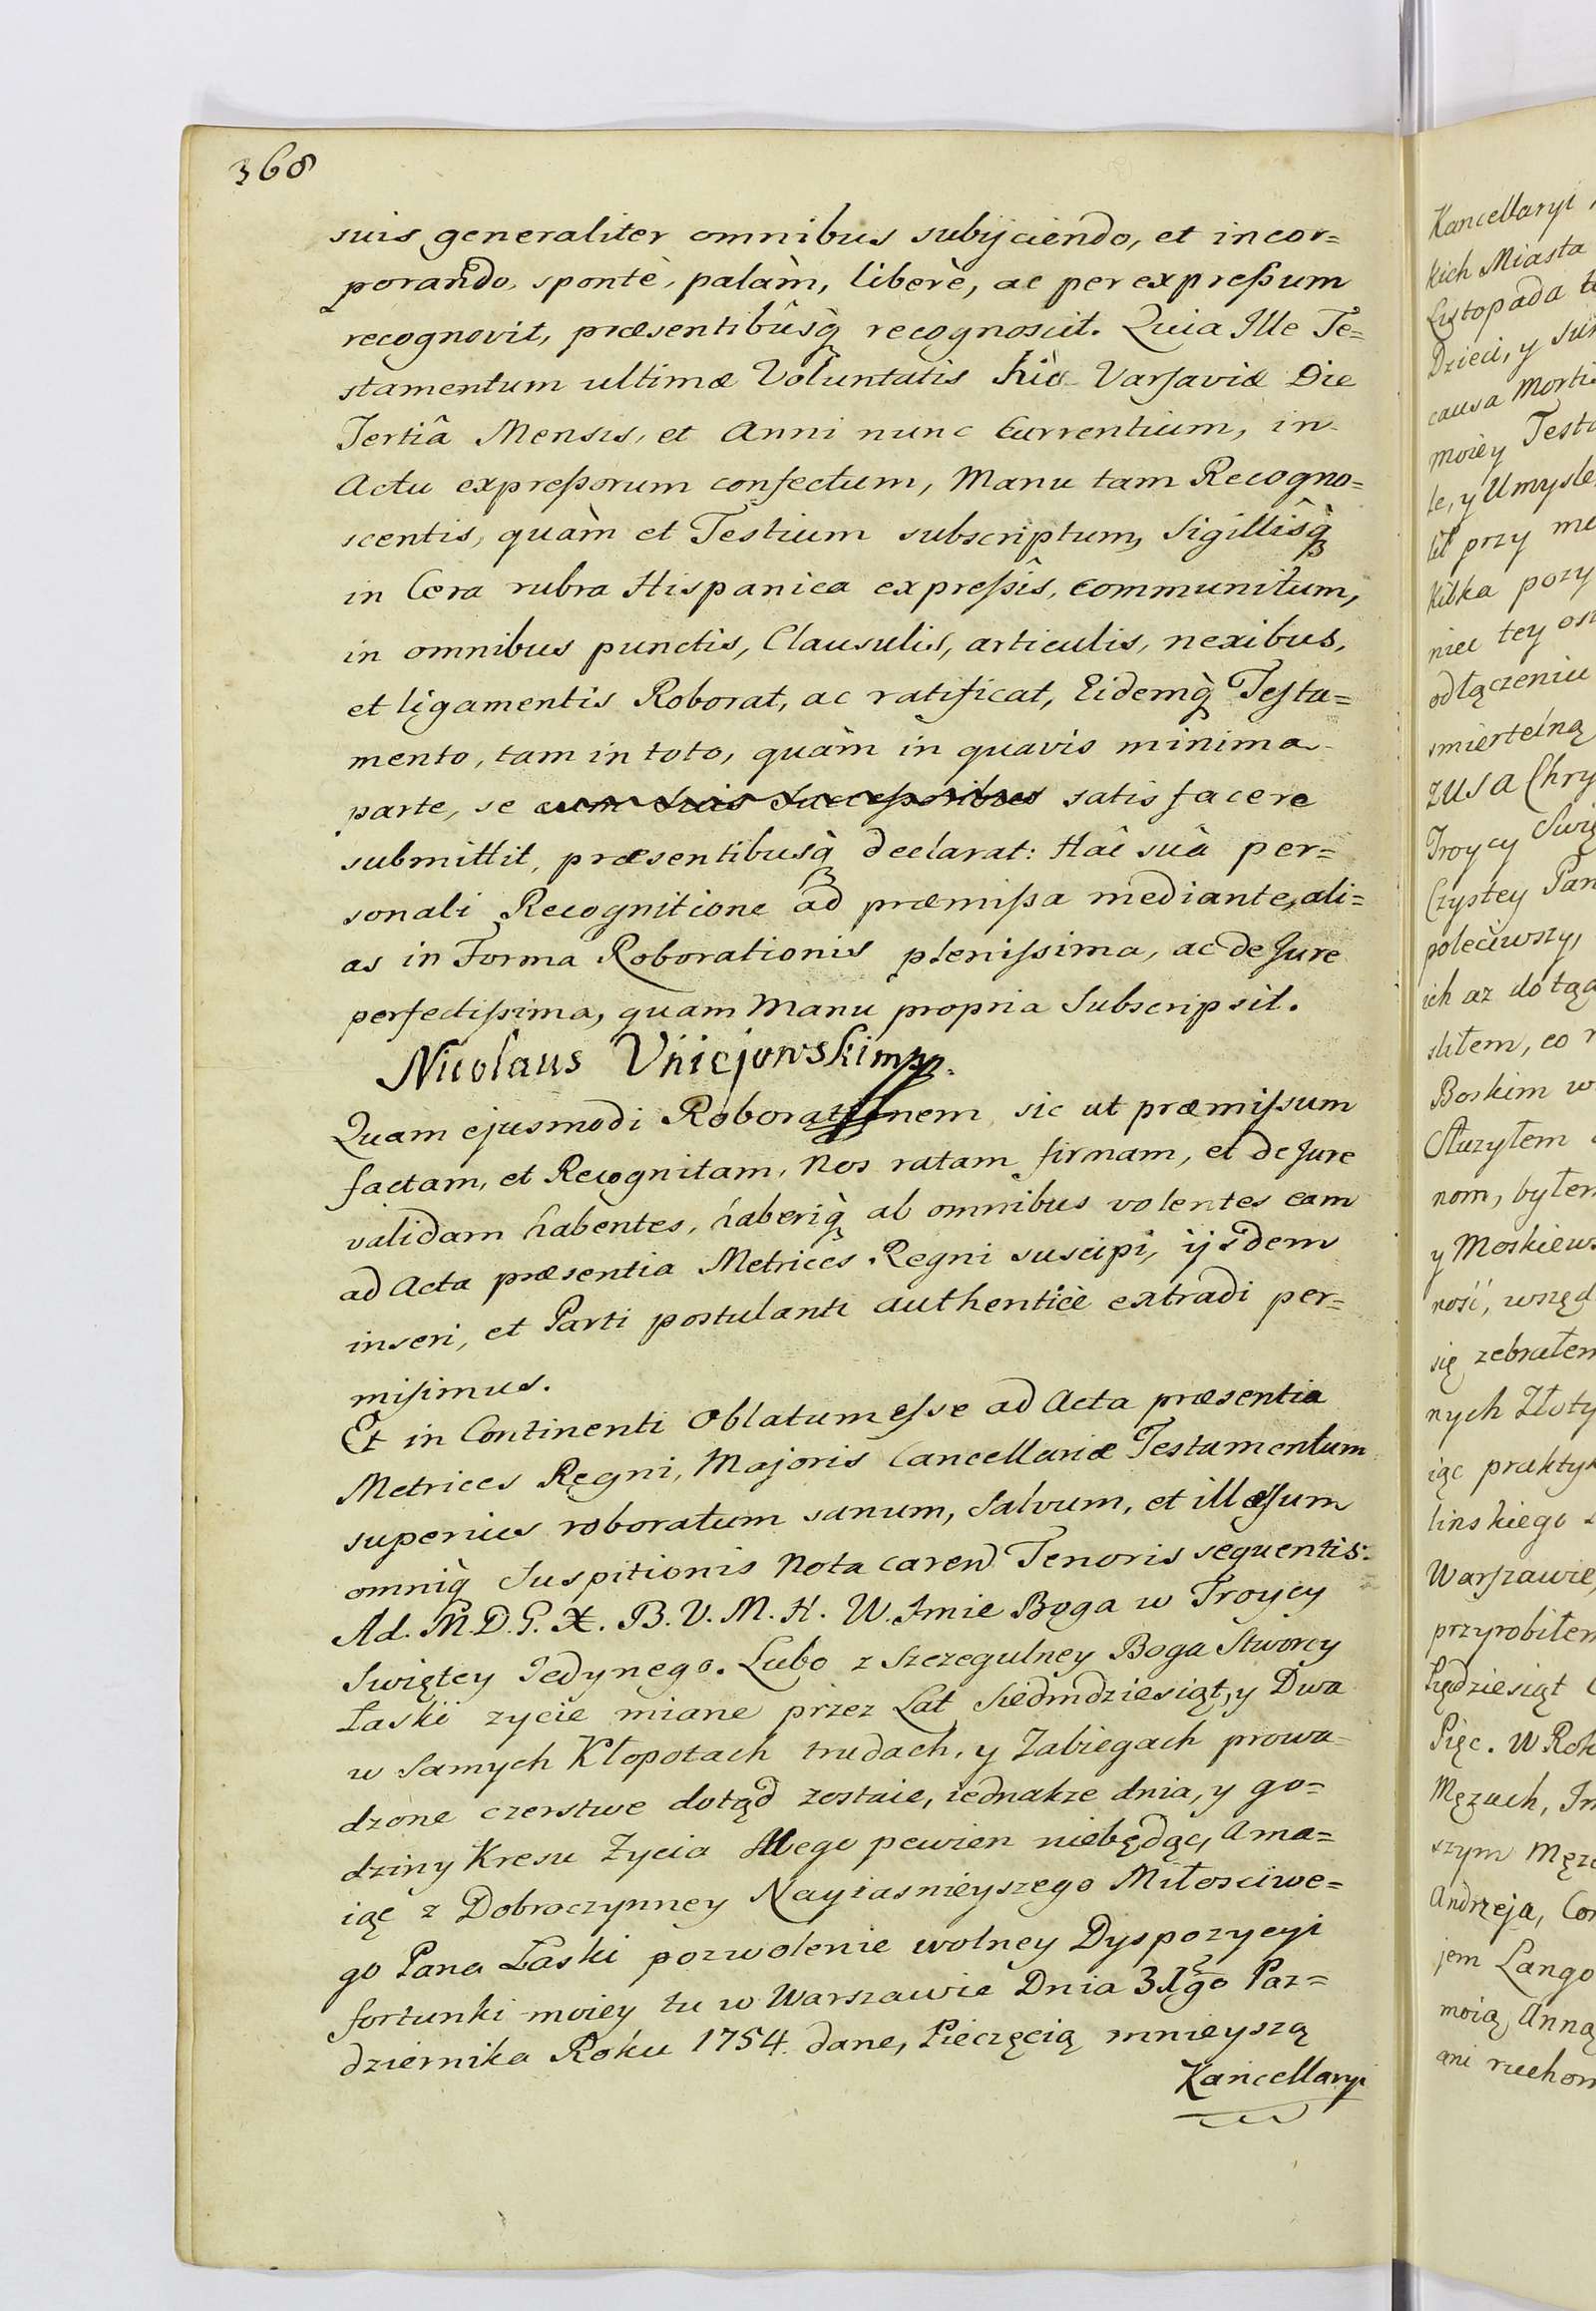 368
suis generaliter omnibus subijciendo, et incor=
porando, spontè, palàm, liberè, ac per expreßum
recognovit, præsentibûsq̀ recognoscit. Quia Ille Te=
stamentum ultimæ Voluntatis hic Varsaviæ Die
Tertiâ Mensis, et Anni nunc Currentium, in
Actu expreßorum confectum, Manu tam Recogno=
scentis, quàm et Testium subscriptum, Sigillîsq̀
in Cera rubra Hispanica expreßîs, communitum,
in omnibus punctis, Clausulis, articulis, nexibus,
et ligamentis Roborat, ac ratificat, Eidemq̀ Testa=
mento, tam in toto, quàm in quavis minima
parte, se cum suis Succeßoribus satisfacere
submittit, præsentibusq̀ declarat: Hac suâ per=
sonali Recognitione ad præmißa mediante, ali=
as in Forma Roborationis plenissima, ac de Jure
perfectißima, quam Manu propria Subscripsit.
Nicolaus Uniejowski mpp.
Quam ejusmodi Roborationem sic ut præmissum
factam, et Recognitam, Nos ratam firmam, et de Jure
validam habentes, haberiq̀ ab omnibus volentes eam
ad Acta præsentia Metrices Regni suscipi, ijsdem
inseri, et Parti postulanti authenticè extradi per=
misimus.
Et in Continenti Oblatum esse ad Acta præsentia
Metrices Regni, Majoris Cancellariæ Testamentum
superius roboratum sanum, Salvum, et illæsum
omniq̀ Suspitionis nota caren Tenoris sequentis:
Ad. M. D. G. X. B. V. M. H. W. Imie Boga w Troycy
Swiętey Jedynego. Lubo z Szczegulney Boga Stworcy
Łaski zycie miane przez Lat Siedmdziesiąt, y Dwa
w Samych Kłopotach trudach, y Zabiegach prowa=
dzone czerstwe dotąd zostaie, iednakze dnia, y go=
dziny Kresu Zycia Mego pewien niebędąc, A ma=
iąc z Dobroczynney Nayiasnieyszego Miłosciwe=
go Pana Łaski pozwolenie wolney Dyspozycyi
fortunki moiey tu w Warszawie Dnia 31go Paz=
dziernika Roku 1754. dane, Pieczęcią mnieyszą
Kancellaryi
Kancellaryi
kich Miasta
Listopada
Dzieci, y
causa Mortis
moiey
le, y Umysle
przy
Kilka
niec tey
odłączeniu
smiertelną
zusa
Troycy
Czystey
poleciwszy,
ich az dotąd
słem, co
Boskim w
Słuzyłem
nom, byłem
y
nosć,
się zebrałem
nych
iąc
linskiego
Warszawie
przyrobiłem
Pięc. W
Męzach,
szym
Andrzeja,
jem Lango
moią Anną
ani